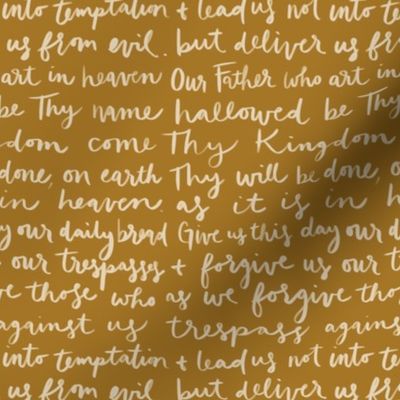 into temptation + lead us not into te
us from evil. but deliver us fr
art in heaven Our Father who art in
be Thy name hallowed be Thy
dom come Thy Kingdom
done, on earth Thy will be done, o
in heaven. as it is in h
our daily bread Give us this day our d
our trespasses + forgive us our t
those who as we forgive those
against us trespass agains
into temptation + lead us not into te
us from evil. but deliver us fr